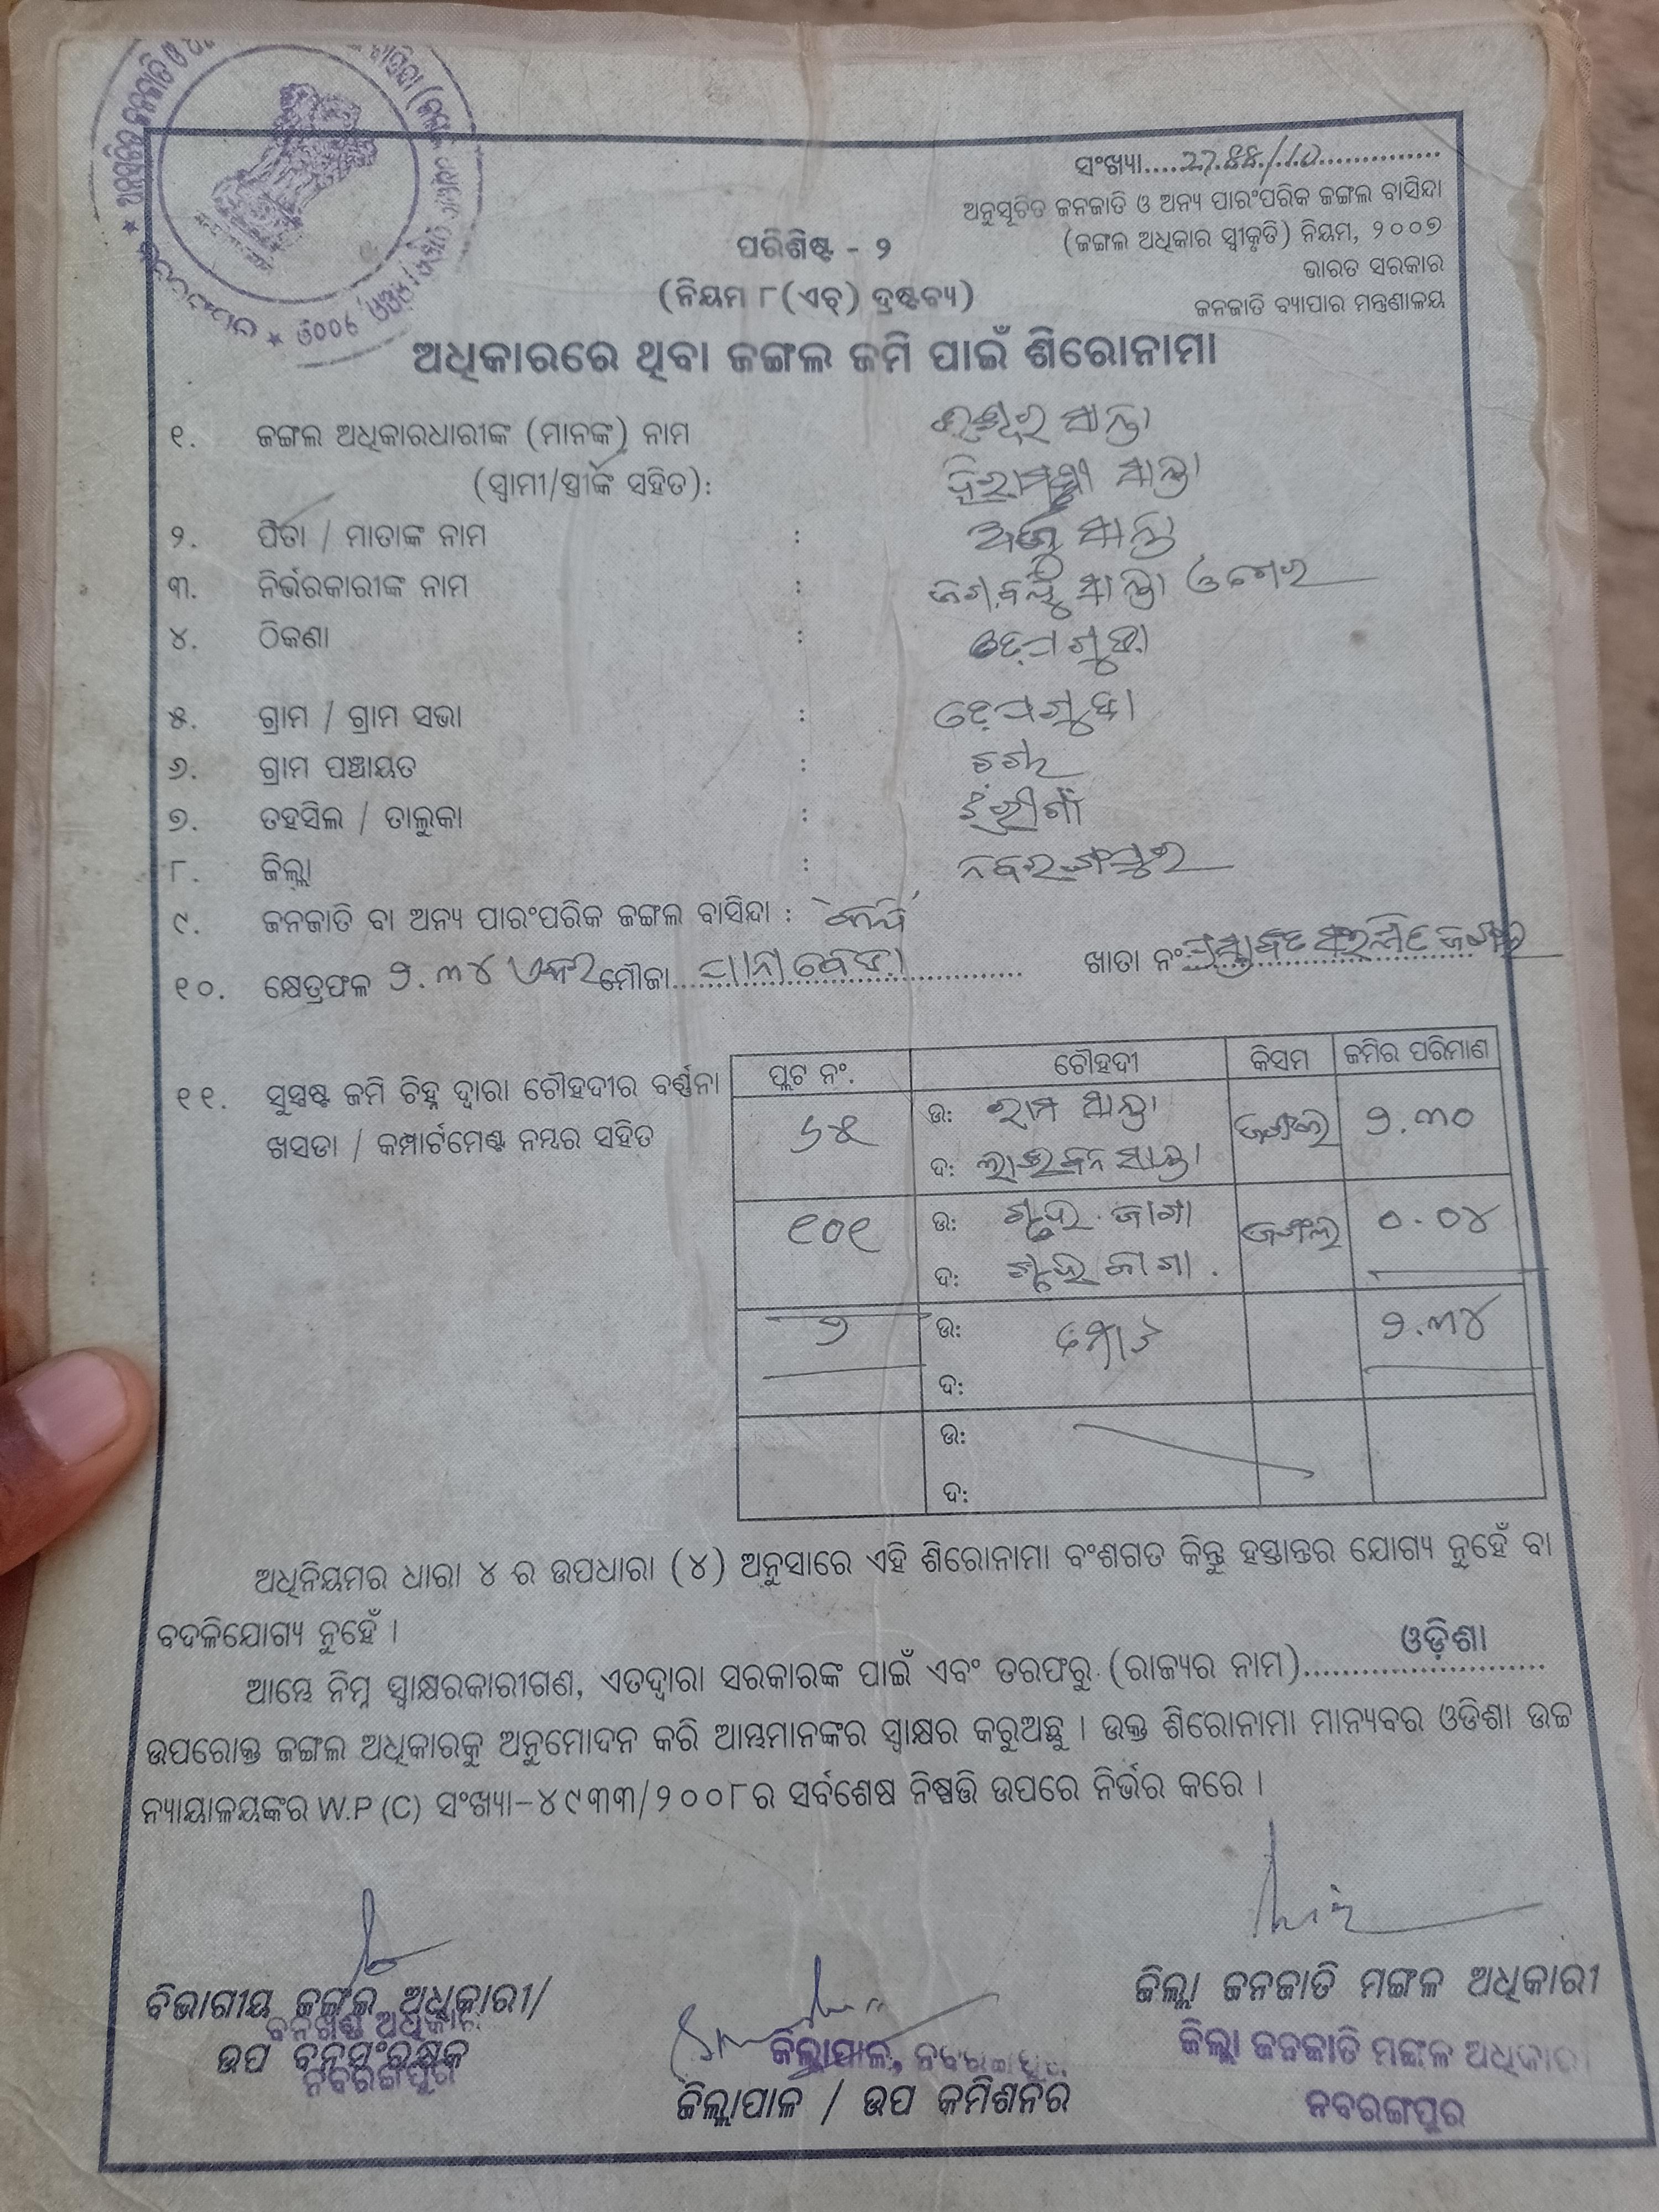 ସଂଖ୍ୟା....
ଅନୁସୂଚିତ ଜନଜାତି ଓ ଅନ୍ୟ ପାରଂପରିକ ଜଙ୍ଗଲ ବାସିନ୍ଦା
(ଜଙ୍ଗଲ ଅଧିକାର ସ୍ୱୀକୃତି) ନିୟମ, ୨୦୦୭
ଭାରତ ସରକାର
ଜନଜାତି ବ୍ୟାପାର ମନ୍ତ୍ରଣାଳୟ
ପରିଶିଷ୍ଟ - ୨
(ନିୟମ ୮(ଏଚ୍) ଦ୍ରଷ୍ଟବ୍ୟ)
ଅଧିକାରରେ ଥିବା ଜଙ୍ଗଲ ଜମି ପାଇଁ ଶିରୋନାମା
୧. ଜଙ୍ଗଲ ଅଧିକାରଧାରୀଙ୍କ (ମାନଙ୍କ) ନାମ ସାନ୍ତା
(ସ୍ୱାମୀ/ସ୍ତ୍ରୀଙ୍କ ସହିତ): ସାନ୍ତା
୨. ପିତା / ମାତାଙ୍କ ନାମ : ସାନ୍ତା
୩. ନିର୍ଭରକାରୀଙ୍କ ନାମ : ସାନ୍ତା
୪. ଠିକଣା :
୫. ଗ୍ରାମ / ଗ୍ରାମ ସଭା :
୬. ଗ୍ରାମ ପଞ୍ଚାୟତ :
୭. ତହସିଲ / ତାଲୁକା : ଝରୀଗାଁ
୮. ଜିଲ୍ଲା : ନବରଙ୍ଗପୁର
୯. ଜନଜାତି ବା ଅନ୍ୟ ପାରଂପରିକ ଜଙ୍ଗଲ ବାସିନ୍ଦା :
୧୦. କ୍ଷେତ୍ରଫଳ ୨.୩୪ ଏକର ମୌଜା.... ଖାତା ନଂ....
୧୧. ସୁସ୍ପଷ୍ଟ ଜମି ଚିହ୍ନ ଦ୍ୱାରା ଚୌହଦୀର ବର୍ଣ୍ଣନା
ଖସଡା / କମ୍ପାର୍ଟମେଣ୍ଟ ନମ୍ବର ସହିତ
ପ୍ଲଟ ନଂ. ଚୌହଦୀ କିସମ ଜମିର ପରିମାଣ
୬୫ ଉ: ରାମ ସାନ୍ତା ଜଙ୍ଗଲ ୨.୩୦
ଦ: ସାନ୍ତା
୧୦୧ ଉ: ଜାଗା ଜଙ୍ଗଲ ୦.୦୪
ଦ: ଜାଗା
୨ ଉ: ମୋଟ ୨.୩୪
ଦ:
ଉ:
ଦ:
ଅଧିନିୟମର ଧାରା ୪ ର ଉପଧାରା (୪) ଅନୁସାରେ ଏହି ଶିରୋନାମା ବଂଶଗତ କିନ୍ତୁ ହସ୍ତାନ୍ତର ଯୋଗ୍ୟ ନୁହେଁ ବା
ବଦଳିଯୋଗ୍ୟ ନୁହେଁ ।
ଆମ୍ଭେ ନିମ୍ନ ସ୍ୱାକ୍ଷରକାରୀଗଣ, ଏତଦ୍ୱାରା ସରକାରଙ୍କ ପାଇଁ ଏବଂ ତରଫରୁ (ରାଜ୍ୟର ନାମ)....ଓଡ଼ିଶା....
ଉପରୋକ୍ତ ଜଙ୍ଗଲ ଅଧିକାରକୁ ଅନୁମୋଦନ କରି ଆମ୍ଭମାନଙ୍କର ସ୍ୱାକ୍ଷର କରୁଅଛୁ । ଉକ୍ତ ଶିରୋନାମା ମାନ୍ୟବର ଓଡିଶା ଉଚ୍ଚ
ନ୍ୟାୟାଳୟଙ୍କର W.P (C) ସଂଖ୍ୟା-୪୯୩୩/୨୦୦୮ର ସର୍ବଶେଷ ନିଷ୍ପତ୍ତି ଉପରେ ନିର୍ଭର କରେ ।
ବିଭାଗୀୟ ଜଙ୍ଗଲ ଅଧିକାରୀ/
ବନଖଣ୍ଡ ଅଧିକାରୀ
ଉପ ବନସଂରକ୍ଷକ
ନବରଙ୍ଗପୁର
ଜିଲ୍ଲାପାଳ, ନବରଙ୍ଗପୁର
ଜିଲ୍ଲାପାଳ / ଉପ କମିଶନର
ଜିଲ୍ଲା ଜନଜାତି ମଙ୍ଗଳ ଅଧିକାରୀ
ଜିଲ୍ଲା ଜନଜାତି ମଙ୍ଗଳ ଅଧିକାରୀ
ନବରଙ୍ଗପୁର